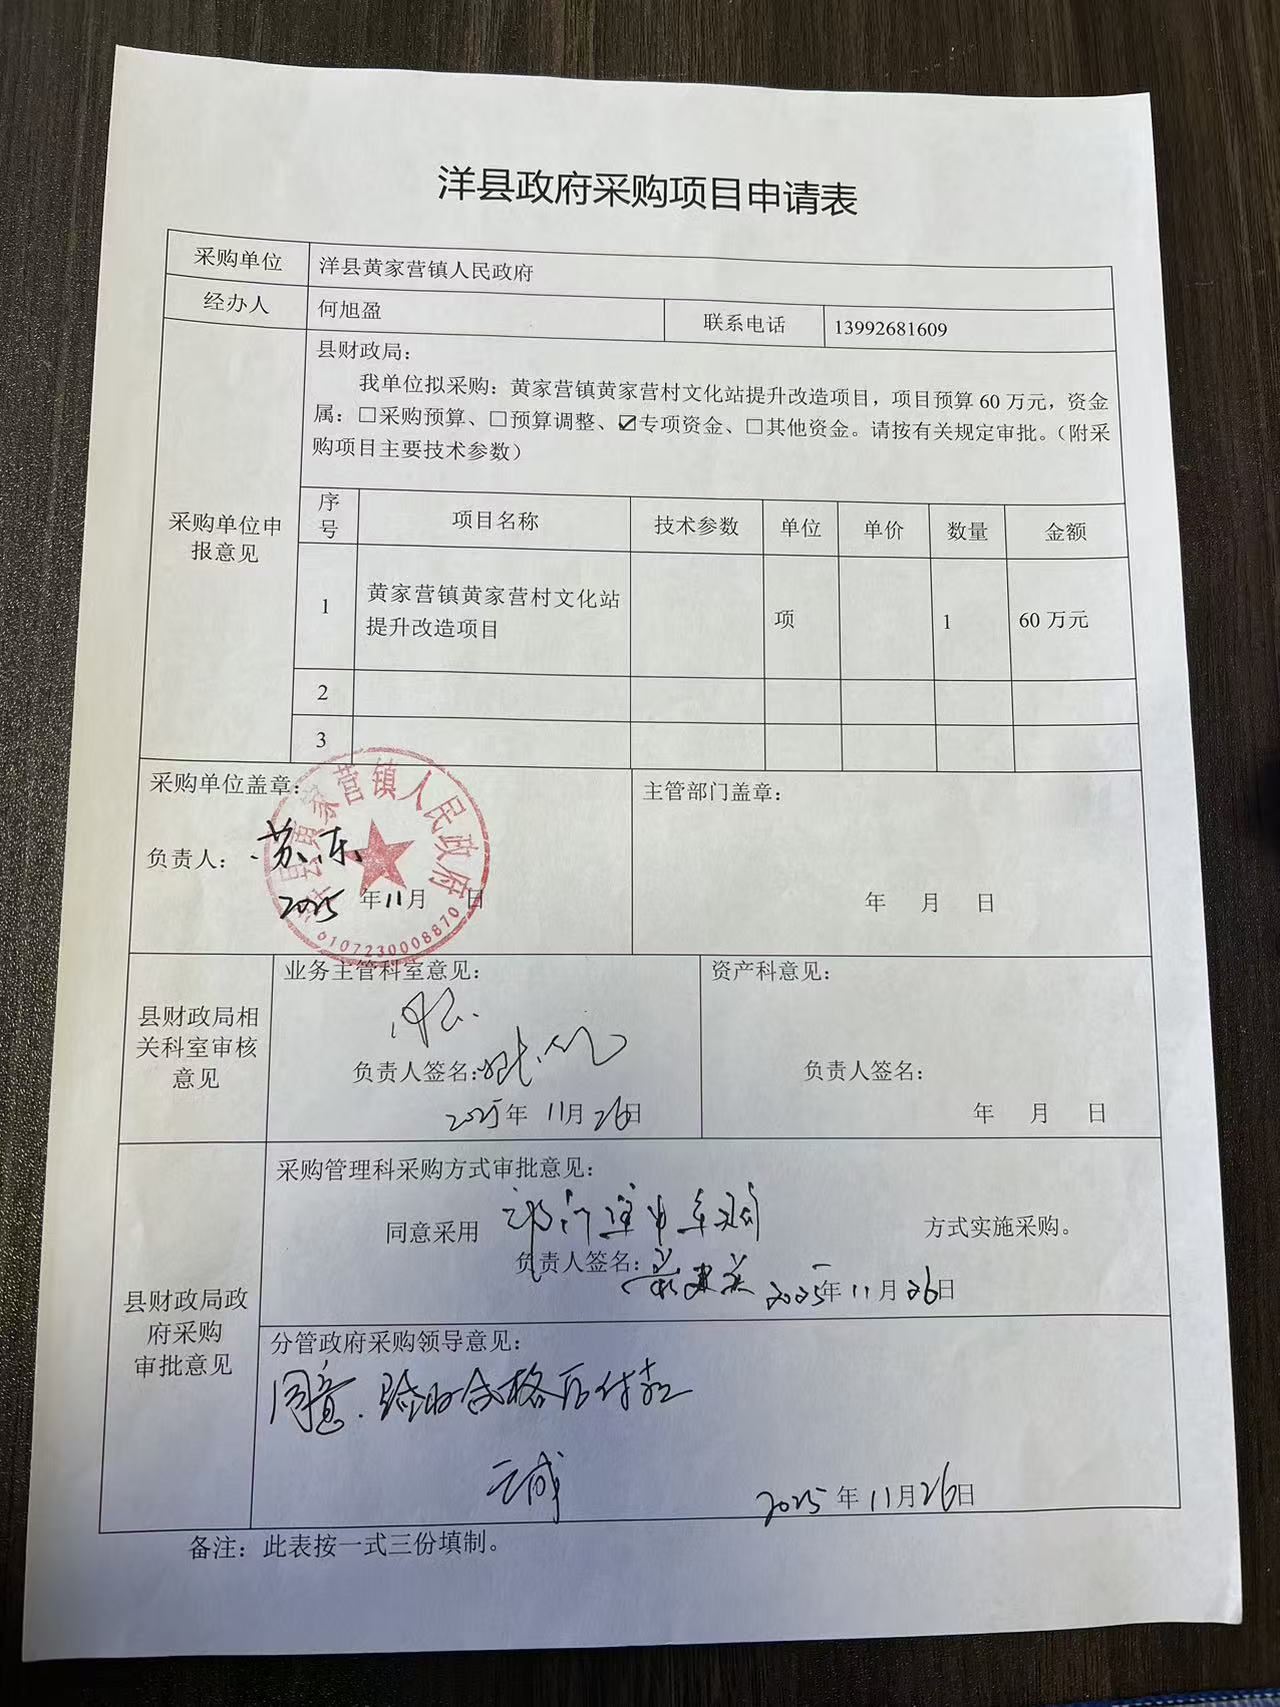 洋县政府采购项目申请表
采购单位
洋县黄家营镇人民政府
经办人
何旭盈
联系电话
13992681609
采购单位申
报意见
县财政局：
我单位拟采购：黄家营镇黄家营村文化站提升改造项目，项目预算 60 万元，资金
属：☐采购预算、☐预算调整、☑专项资金、☐其他资金。请按有关规定审批。（附采
购项目主要技术参数）
序号 项目名称 技术参数 单位 单价 数量 金额
1 黄家营镇黄家营村文化站 项 1 60 万元
提升改造项目
2
3
采购单位盖章：
负责人：苏东
2025 年 11 月 日
洋县黄家营镇人民政府
6107230008870
主管部门盖章：
年 月 日
县财政局相
关科室审核
意见
业务主管科室意见：
负责人签名：
2025年 11月 26日
资产科意见：
负责人签名：
年 月 日
县财政局政
府采购
审批意见
采购管理科采购方式审批意见：
同意采用 方式实施采购。
负责人签名： 2025年 11月 26日
分管政府采购领导意见：
同意.验收合格后付款
2025 年 11月 26日
备注：此表按一式三份填制。